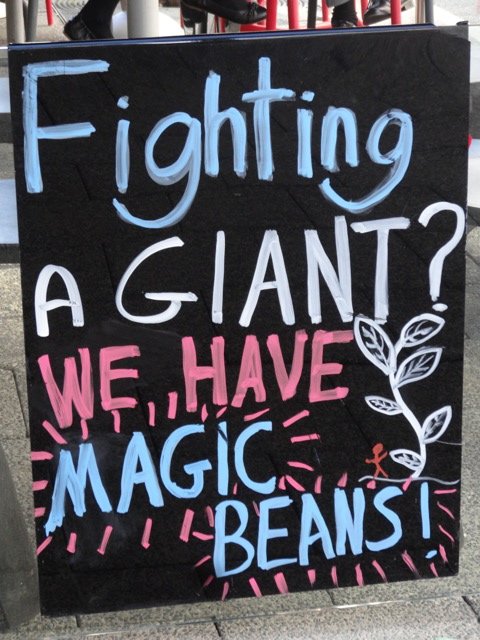 Fighting
A GIANT?
WE HAVE
MAGIC
BEANS!